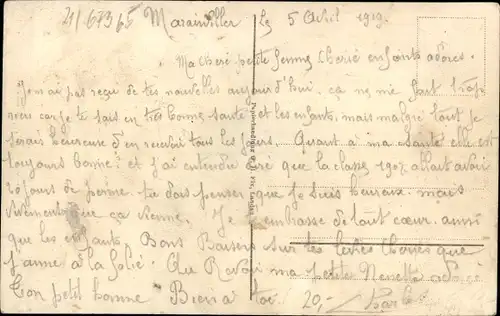 21/68365 Marainviller Le 5 Avril 1919.
Ma Chere petite femme Cherie enfants adores.
J'ai pas reçu de tes nouvelles aujourd'hui. ça ne me fait trop
rien car je te sais en très bonne santé et les enfants, mais malgre tout je
serais heureuse d'en recevoir tous les jours. Quant à ma Santé elle est
toujours bonne. et j'ai entendu dire que la classe 1907 allait avoir
jours de perme. tu dois penser que je suis heureux mais
vivement que ça vienne. Je t'embrasse de tout cœur. ainsi
que les enfants. Bons Baisers sur tes levres Cheries que
j'aime à la folie. Au Revoir ma petite Nenette adorée
Ton petit homme Bien a toi 20,- Charles